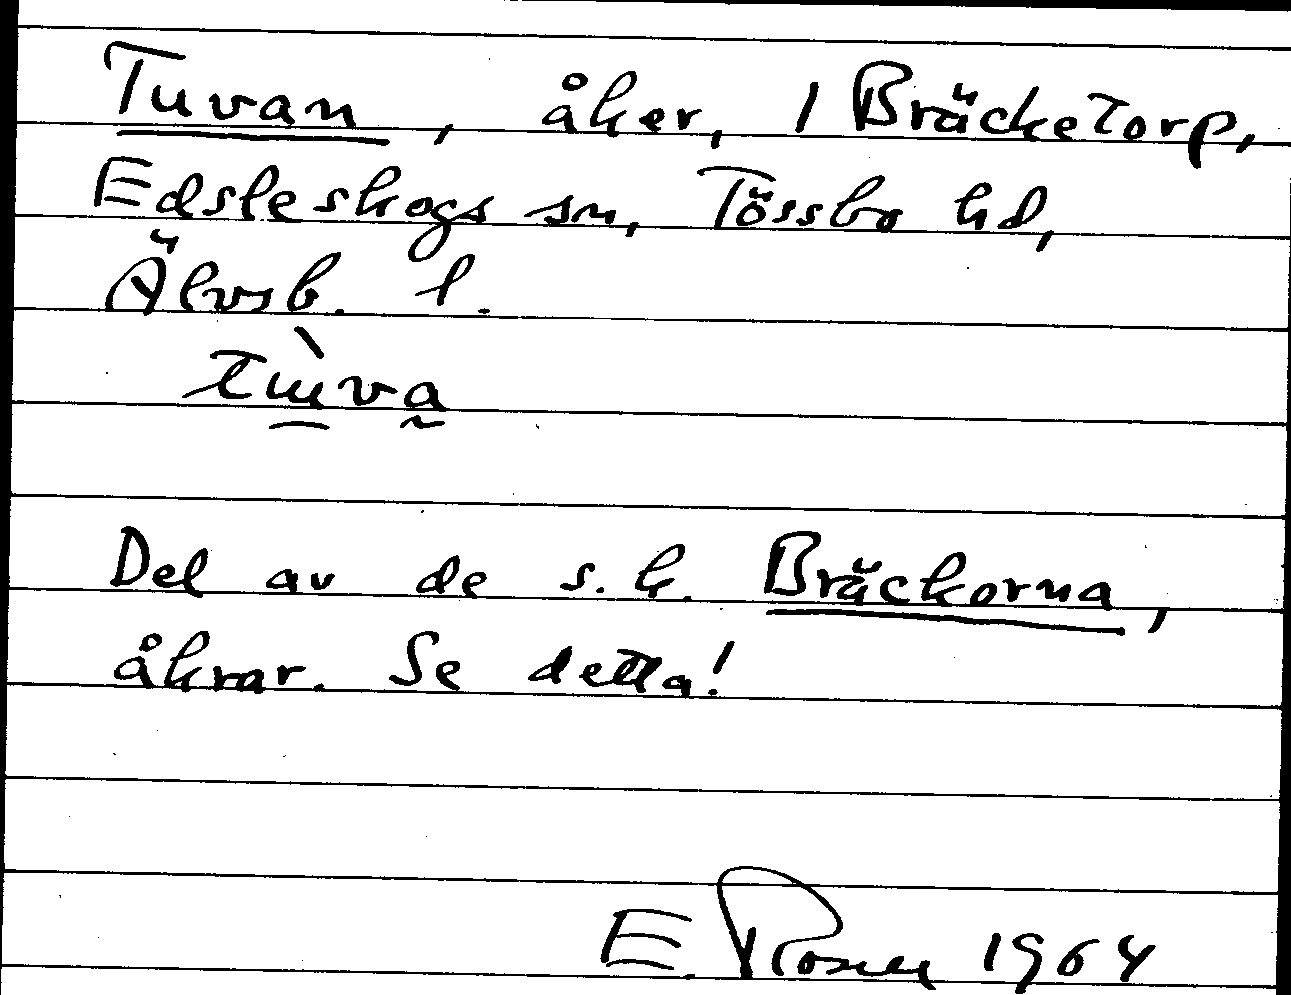 Tuvan, åker, 1 Bräcketorp,
Edsleskogs sn, Tössbo hd,
Älvsb. l.
tɯ̀va
Del av de s.k. Bräckorna,
åkrar. Se detta!
E. Rosen 1964